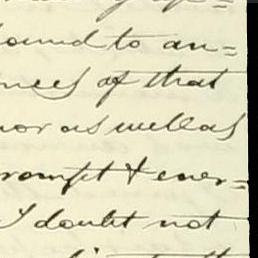 ound to an=
nces of that
nor as well as
rompt & ener=
I doubt not